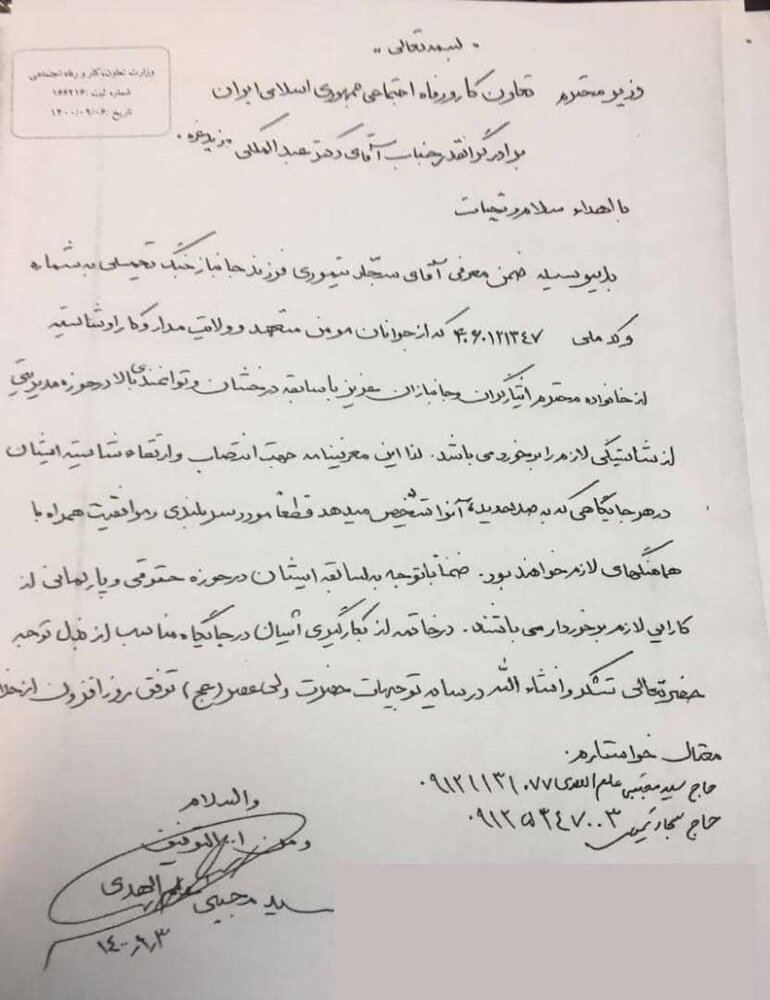 وزارت تعاون، کار و رفاه اجتماعی
شماره ثبت: ۱۶۶۲۱۶
تاریخ: ۱۴۰۰/۰۹/۰۶
« بسمه تعالی »
وزیر محترم تعاون کار و رفاه اجتماعی جمهوری اسلامی ایران
برادر گرانقدر جناب آقای دکتر عبدالملکی
با اهداء سلام و تحیات
بدینوسیله ضمن معرفی آقای سجاد تیموری فرزند جانباز جنگ تحمیلی به شماره
و کد ملی ۴۰۶۰۱۲۱۳۴۷ که از جوانان مومن متعهد و ولایت مدار و کارا و شایسته
از خانواده محترم ایثارگران و جانبازان عزیز با سابقه درخشان و توانمندی بالا در حوزه مدیریتی
از شایستگی لازم را برخورد می باشد. لذا این معرفینامه جهت انتصاب و ارتقاء شایسته ایشان
در هر جایگاهی که به صلاحدید آنرا تشخیص میدهد قطعاً مورد سربلندی و موفقیت همراه با
هماهنگیهای لازم خواهند بود. ضمناً باتوجه به سابقه ایشان در حوزه حقوقی و پارلمانی از
کارایی لازم برخوردار می باشند. در خاتمه از بکارگیری ایشان در جایگاه مناسب از قبل توجه
حضرتعالی تشکر و انشاء الله در سایه توجیهات حضرت ولی عصر (عج) توفق روز افزون از خدا
متعال خواستارم.
حاج سید مجتبی علم الهدی ۰۹۱۲۱۱۳۱۰۷۷
حاج سجاد ۰۹۱۲۵۳۴۷۰۰۳
والسلام
و من ا... التوفیق
سید مجتبی علم الهدی
۱۴۰۰/۹/۳